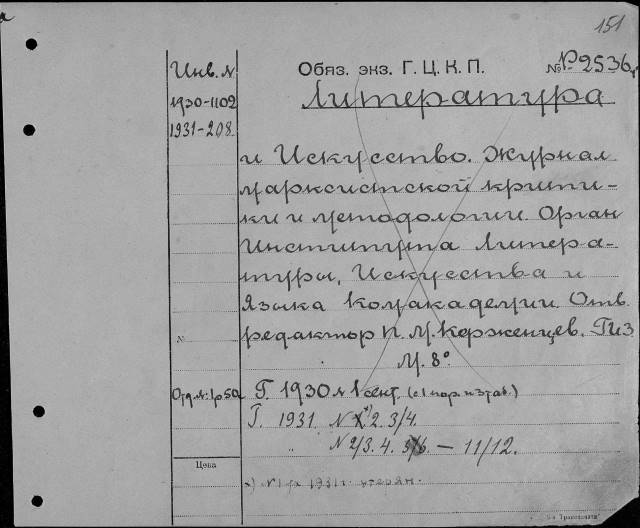 151
Инв. N
Обяз. экз. Г. Ц. К. П.
№ Р2536
1930-1102
Литература
1931-208
и Искусство. Журнал
марксистской крити-
ки и методологии. Орган
Института Литера-
туры, Искусства и
Языка Комакадемии. Отв.
редактор П. М. Керженцев. Гиз
№
М. 8°.
Отд. №: 1р50
Г. 1930 N 1 сент.
Г. 1931. N 1. 2. 3/4.
" N 2/3. 4. 5/6 — 11/12.
Цена
N 1 1931 г. утерян.